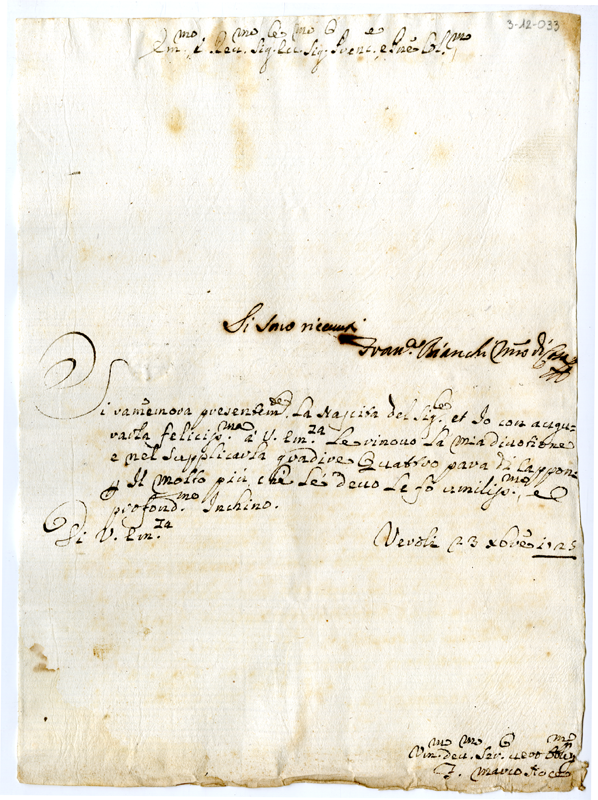 3-12-033
Em.mo e Rev.mo Sig.re
Si sono riceuuti
Fran.co Bianchi
Si ramemora presentem.te La Nascita del Sig.re et Io con augu-
rarla feliciss.ma à V. Em.za Le rinouo La mia diuotione
e nel supplicarla gradire Quattro para di Cappon
Il molto più, che Le deuo Le fò umiliss.mo e
profond.mo Inchino.
Di V. Em.za
Veroli 23 Xbre 1725
Um.mo Dev.mo Ser.
F. Marco